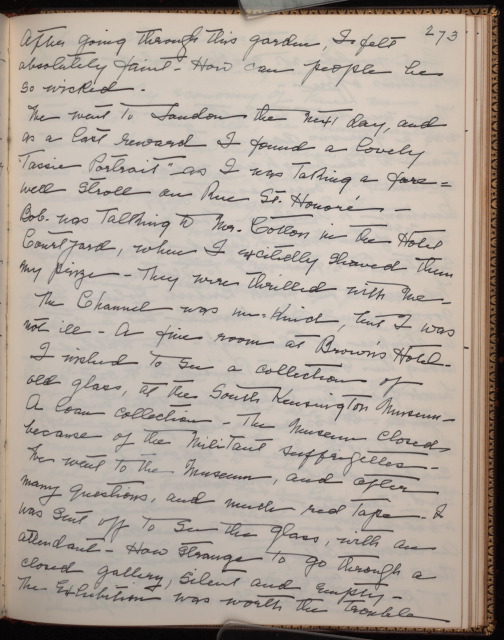 273
After going through this garden, I felt
absolutely faint - How can people be
so wicked.
We went to London the next day, and
as a last reward I found a lovely
"Tassie Portrait" as I was taking a fare=
well stroll on Rue St. Honoré -
Bob. was talking to Mr. Cotton in the Hotel
Courtyard, when I excitedly showed them
my prize - They were thrilled with me -
The Channel was un=kind, but I was
not ill - A fine room at Brown's Hotel -
I wished to see a collection of
old glass, at the South Kensington Museum -
A loan collection - The Museum closed
because of the militant suffragettes -
We went to the Museum, and after
many questions, and much red tape - I
was sent off to see the glass, with an
attendant - How strange to go through a
closed gallery, silent and empty -
The Exhibition was worth the trouble